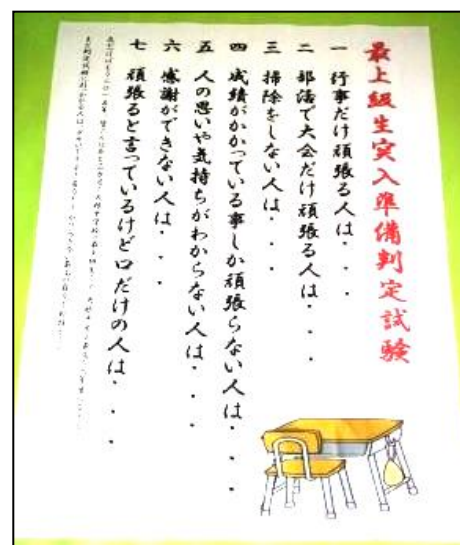 最上級生突入準備判定試験
一 行事だけ頑張る人は・・・
二 部活で大会だけ頑張る人は・・・
三 掃除をしない人は・・・
四 成績がかかっている事しか頑張らない人は・・・
五 人の思いや気持ちがわからない人は・・・
六 感謝ができない人は・・・
七 頑張ると言っているけど口だけの人は・・・